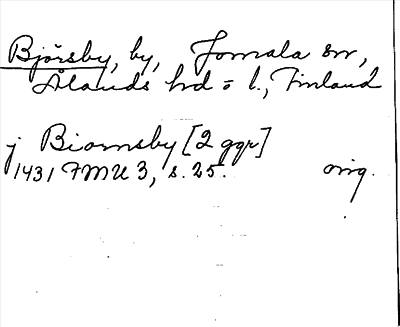 Björsby, by, Jomala sn,
Ålands hd o l., Finland
j Biornsby [2 ggr]
1431 FMU 3, s. 25. orig.